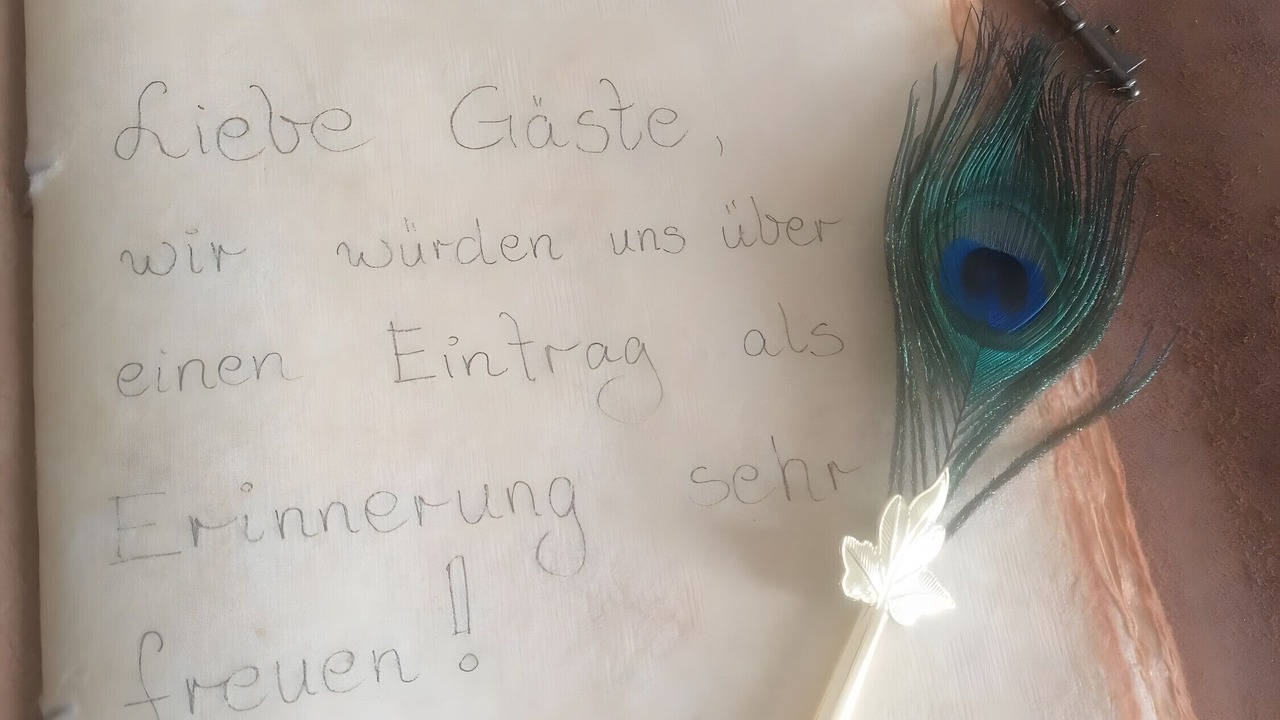 Liebe Gäste,
wir würden uns über
einen Eintrag als
Erinnerung sehr
freuen!